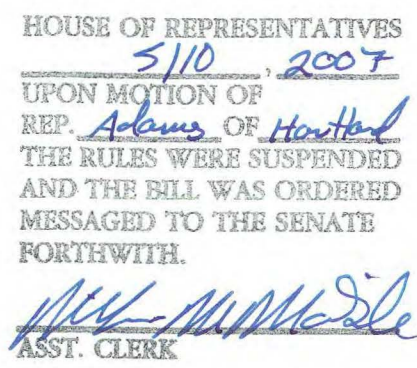 HOUSE OF REPRESENTATIVES
5/10, 2007
UPON MOTION OF
REP. Adams OF
THE RULES WERE SUSPENDED
AND THE BILL WAS ORDERED
MESSAGED TO THE SENATE
FORTHWITH.
ASST. CLERK